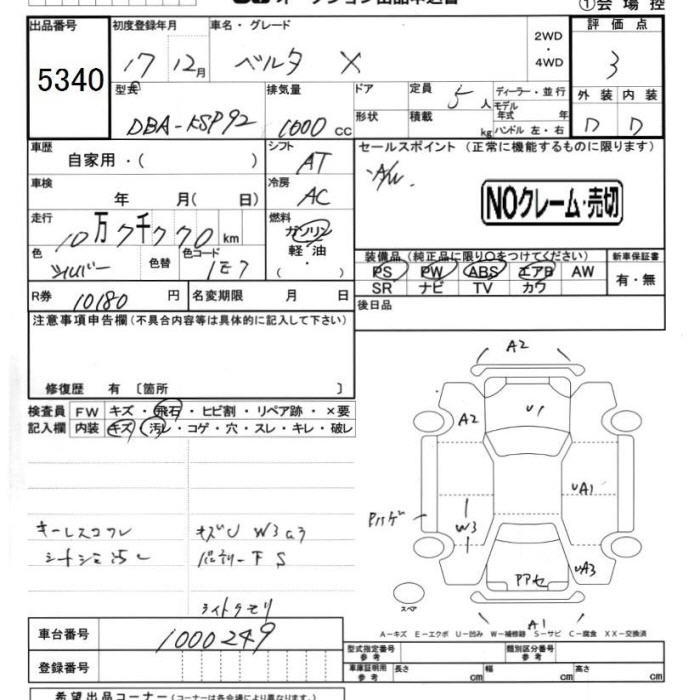 ①会場控
出品番号 初度登録年月 車名・グレード 評価点
5340 17 12月 ベルタ X 2WD・4WD 3
型式 排気量 ドア 定員 ディーラー・並行 外装 内装
DBA-KSP92 1000cc 形状 積載 5人 モデル年式 年 D D
kg ハンドル 左・右
車歴 シフト セールスポイント (正常に機能するものに限ります)
自家用・( ) AT A/W
車検 冷房 NOクレーム・売切
年 月( 日) AC
走行 燃料
10万7千770km ガソリン
色 色替 色コード 軽・油 装備品 (純正品に限り○をつけてください) 新車保証書
シルバー 1E7 ( ) PS PW ABS エアB AW 有・無
SR ナビ TV カワ
R券 10180円 名変期限 月 日 後日品
注意事項申告欄(不具合内容等は具体的に記入して下さい)
修復歴 有 〔箇所 〕
検査員 FW キズ・飛石・ヒビ割・リペア跡・×要
記入欄 内装 キズ・汚レ・コゲ・穴・スレ・キレ・破レ
A2
U1
A2
UA1
W3
UA3
A1
スペア
キーレスコワレ キズU W3a3
シートシミ汚レ
ライトクモリ
車台番号 1000249
A-キズ E-エクボ U-凹み W-補修跡 S-サビ C-腐食 XX-交換済
型式指定番号 参考 類別区分番号 参考
登録番号 車庫証明用 参考 長さ cm 幅 cm 高さ cm
希望出品コーナー(コーナーは各会場により異なります。)